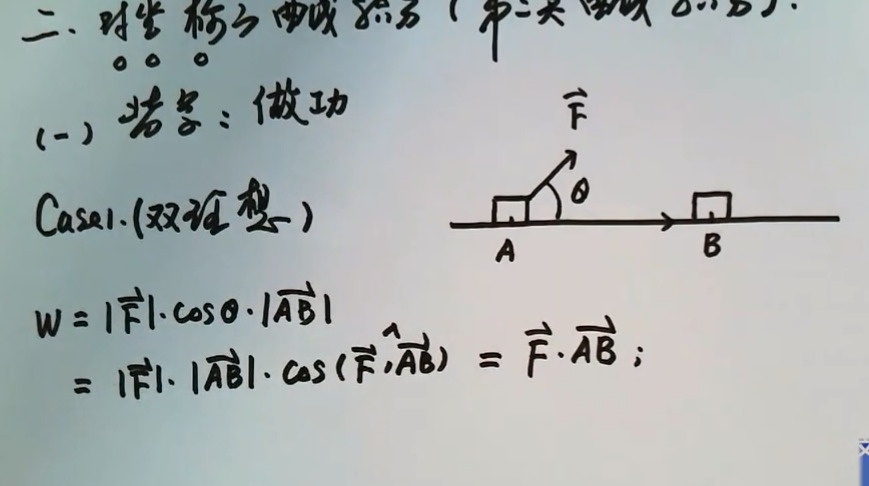 二. 对坐标的曲线积分 (第二类曲线积分).
(一) 背景: 做功
F⃗
θ
Case1. (双理想)
A B
W = |F⃗|·cosθ·|AB⃗|
= |F⃗|·|AB⃗|·cos(F⃗,^AB⃗) = F⃗·AB⃗;